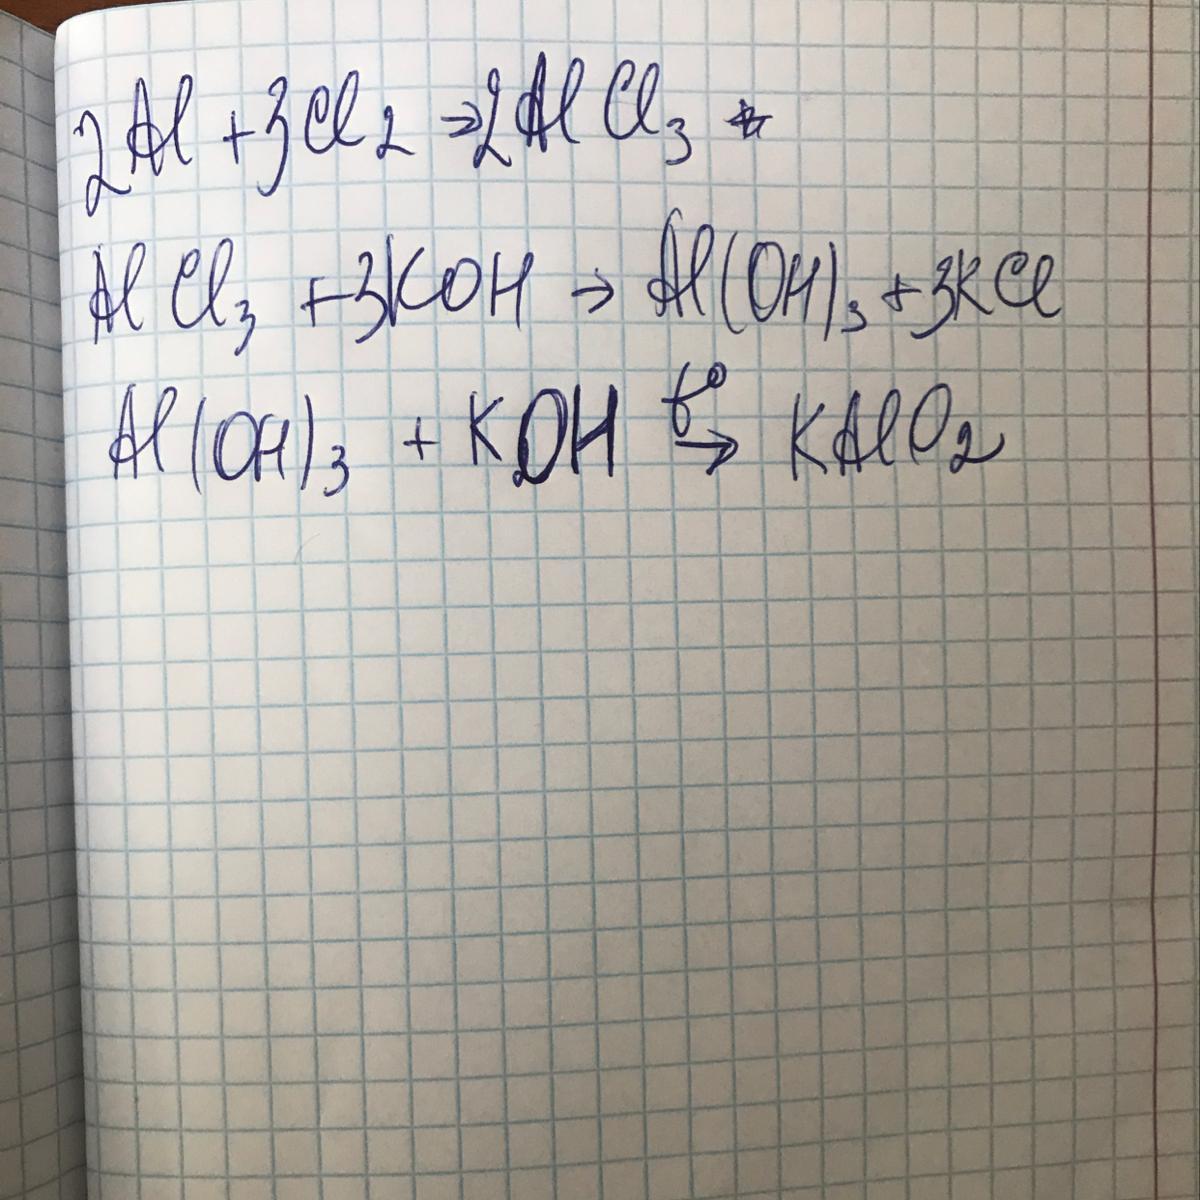 2Al + 3Cl₂ → 2AlCl₃
AlCl₃ + 3KOH → Al(OH)₃ + 3KCl
Al(OH)₃ + KOH t° → KAlO₂